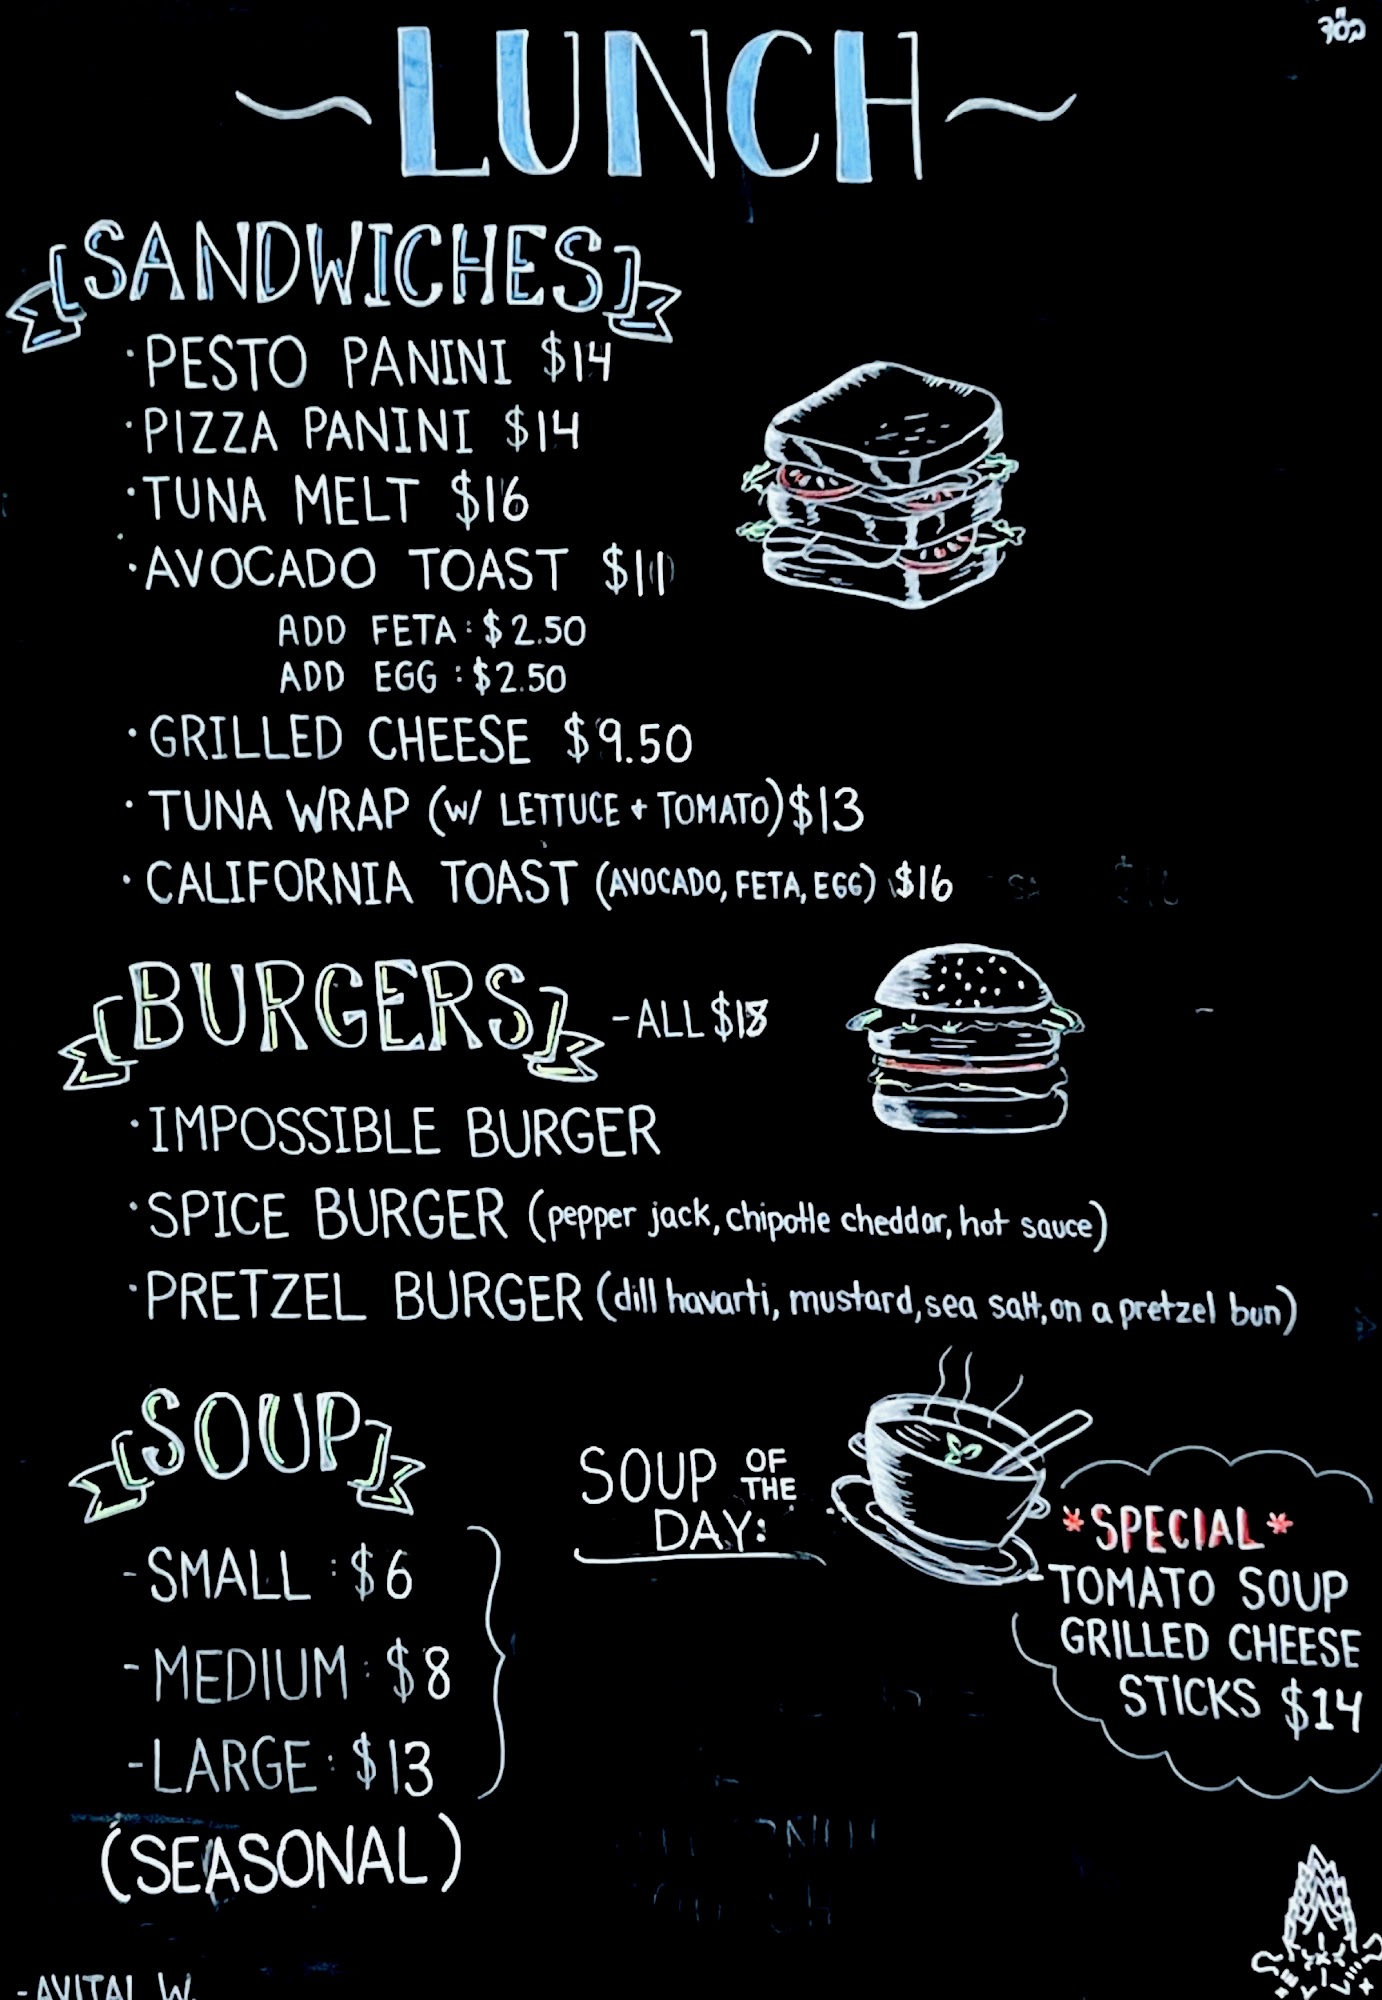 בס"ד
~LUNCH~
SANDWICHES
·PESTO PANINI $14
·PIZZA PANINI $14
·TUNA MELT $16
·AVOCADO TOAST $11
ADD FETA: $2.50
ADD EGG: $2.50
·GRILLED CHEESE $9.50
·TUNA WRAP (W/ LETTUCE + TOMATO) $13
·CALIFORNIA TOAST (AVOCADO, FETA, EGG) $16
BURGERS -ALL $18
·IMPOSSIBLE BURGER
·SPICE BURGER (pepper jack, chipotle cheddar, hot sauce)
·PRETZEL BURGER (dill havarti, mustard, sea salt, on a pretzel bun)
SOUP
-SMALL: $6
-MEDIUM: $8
-LARGE: $13
(SEASONAL)
SOUP OF THE
DAY:
*SPECIAL*
-TOMATO SOUP
GRILLED CHEESE
STICKS $14
-AVITAL W.